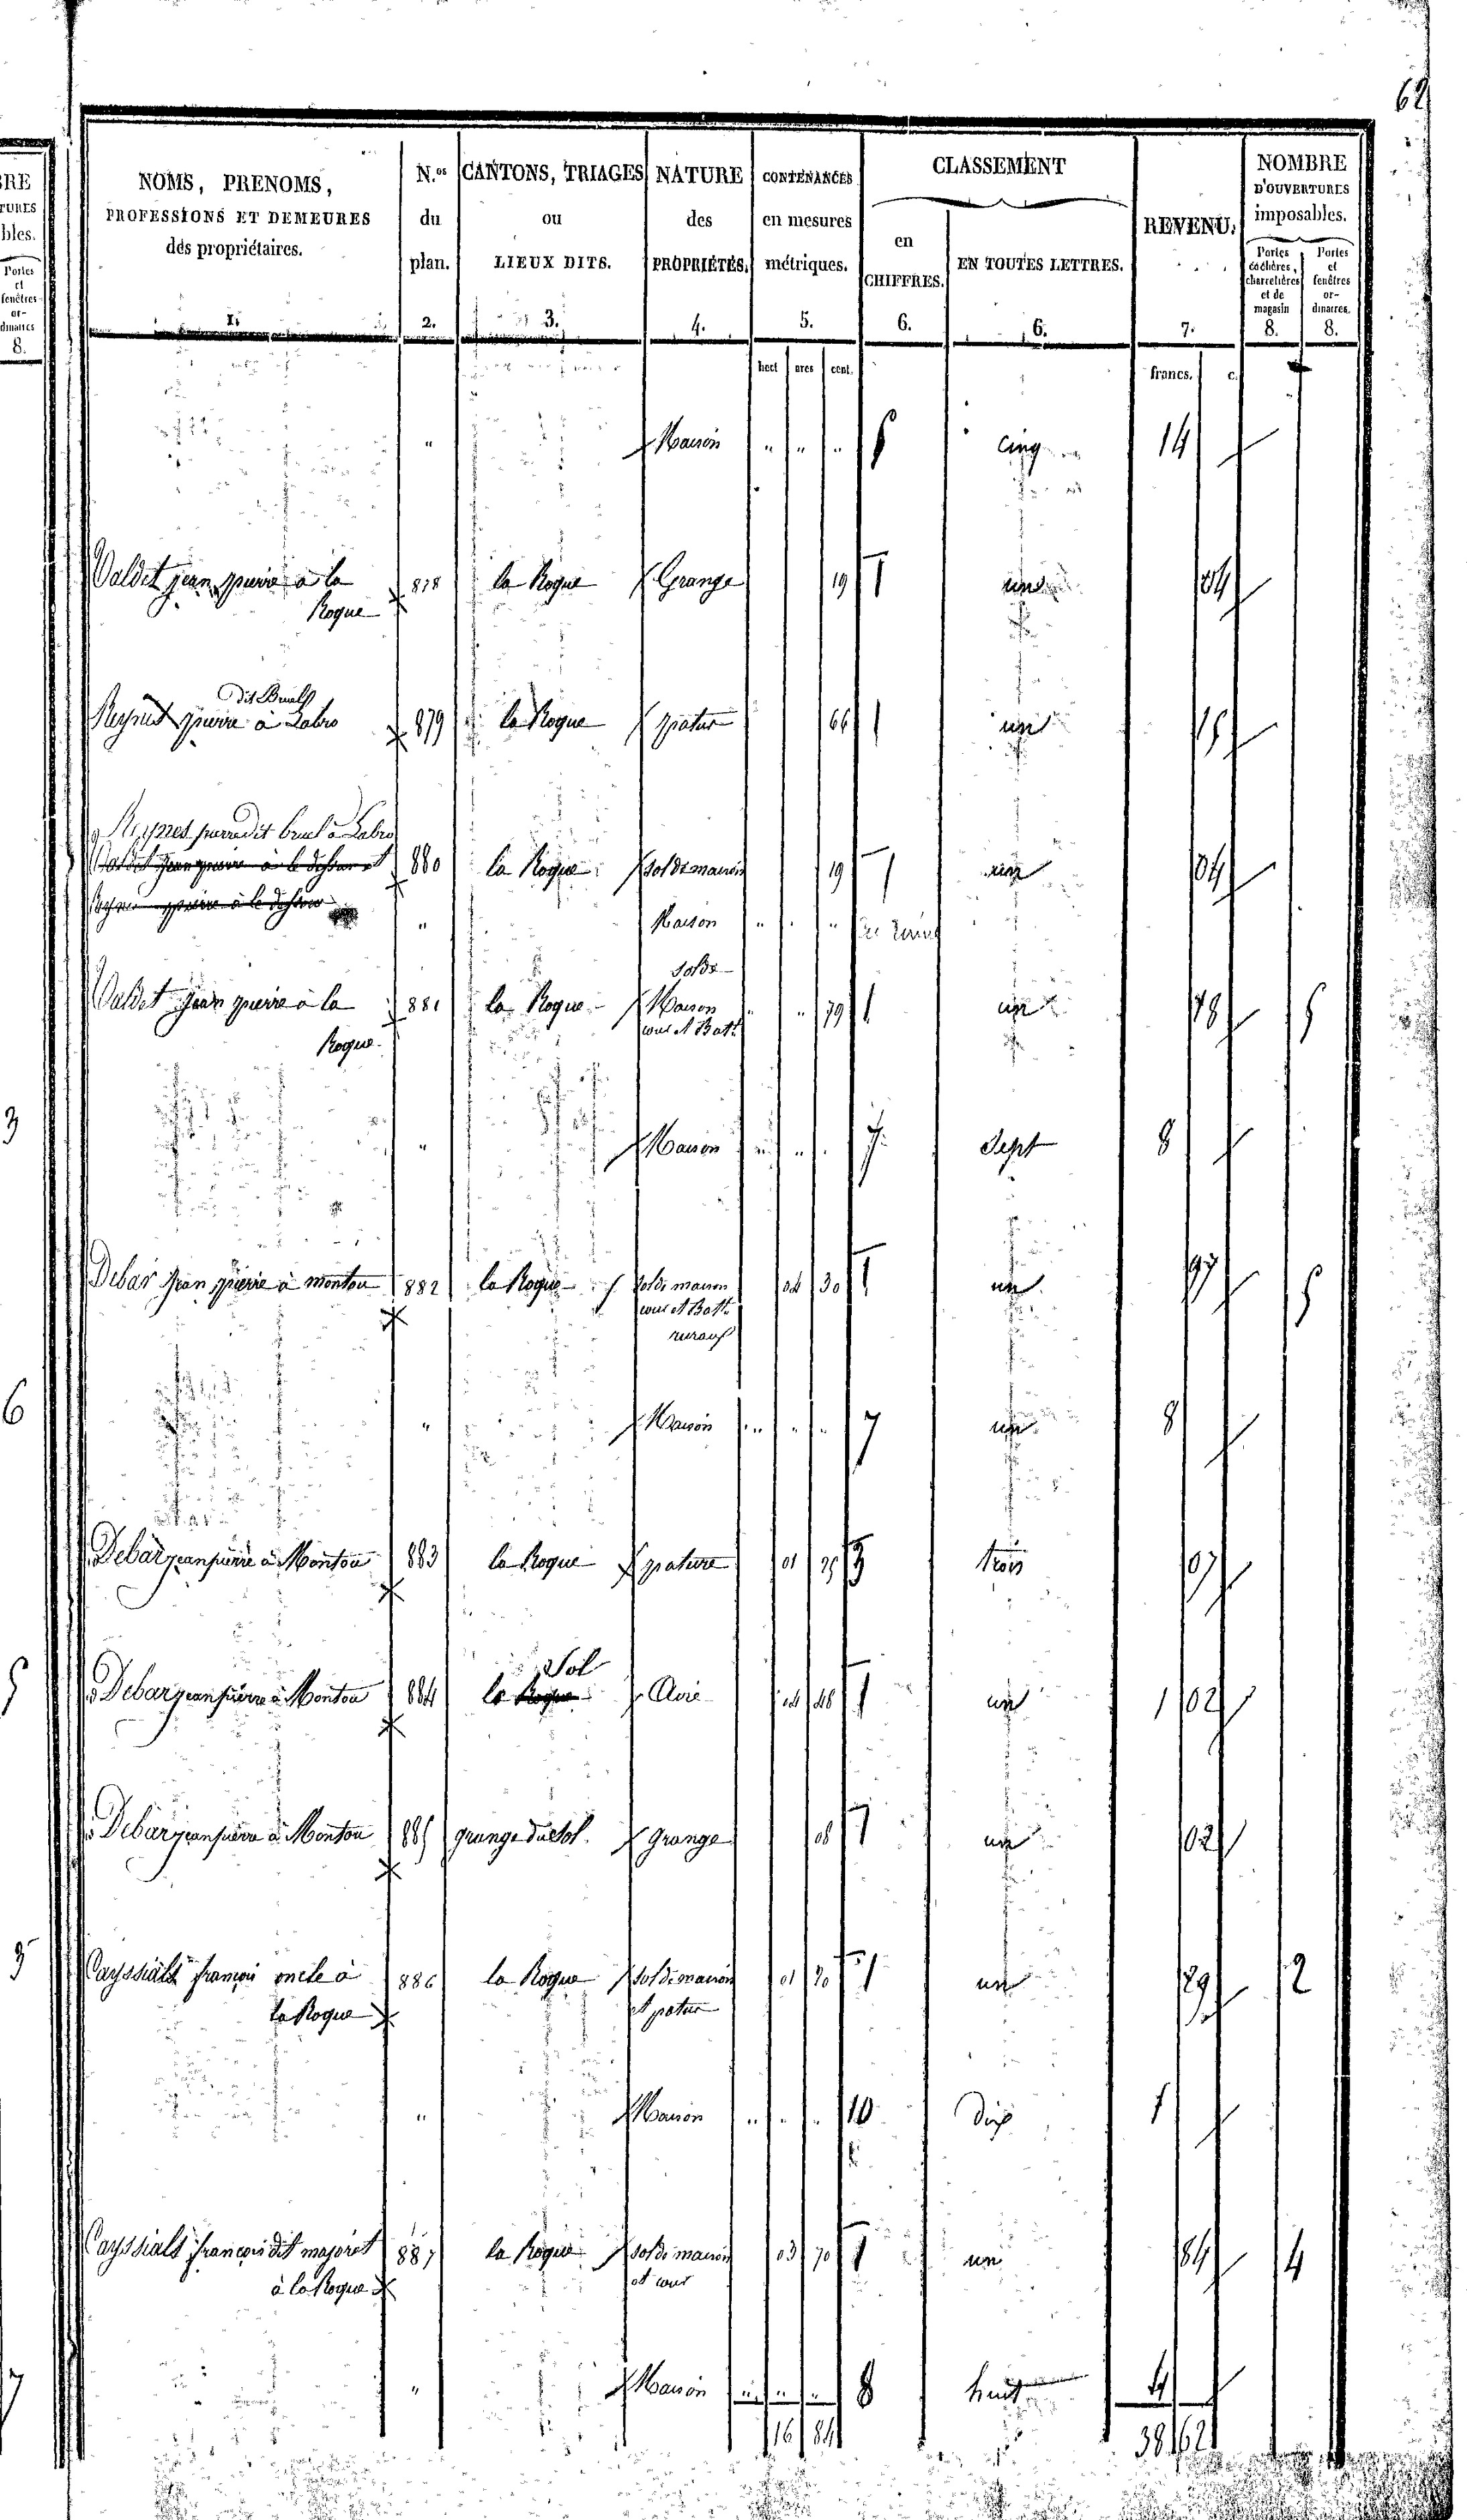 62
NOMS, PRENOMS, PROFESSIONS ET DEMEURES des propriétaires. 1.
N.os du plan. 2.
CANTONS, TRIAGES ou LIEUX DITS. 3.
NATURE des PROPRIÉTÉS. 4.
CONTENANCES en mesures métriques. 5.
CLASSEMENT
en CHIFFRES. 6.
EN TOUTES LETTRES. 6.
REVENU. 7.
NOMBRE D'OUVERTURES imposables.
Portes cochères, charretières et de magasin 8.
Portes et fenêtres ordinaires. 8.
hect ares cent. francs. c.
" Maison " " " 5 cinq 14
Valdet jean pierre à la 878 la Roque Grange 19 1 une 04
Roque
dit Bruel
Reynes pierre à Labro 879 la Roque patur 66 1 un 15
Reynes pierre dit bruel à Labro
880 la Roque sol de maison 19 1 un 04
" Maison " " "
sol de
Valdet Jean pierre à la 881 la Roque Maison " " 79 1 un 18 5
Roque cour et Batt
" Maison " " 7 Sept 8
Debar Jean pierre à montou 882 la Roque sol de maison 04 30 1 un 97 5
cour et Batt
ruraux
" Maison " " " 7 un 8
Debar jean pierre à Montou 883 la Roque pature 01 25 3 trois 07
Sol
Debar jean pierre à Montou 884 le Roque Aire 04 48 1 un 1 02
Debar jean pierre à Montou 885 grange du sol Grange 08 1 un 02
Cayssials françois oncle à 886 la Roque sol de maison 01 30 1 un 29 2
la Roque et patur
" Maison " " " 10 dix 1
Cayssials françois dit majoret 887 la Roque sol de maison 03 70 1 un 84 4
à la Roque et cour
" Maison " " " 8 huit 4
16 84 38 62